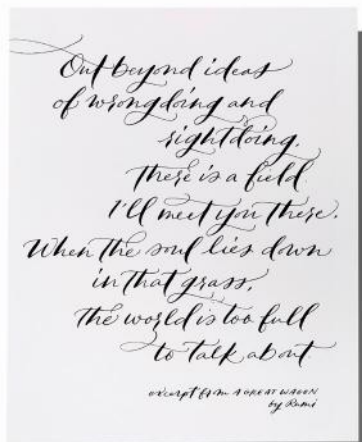 Out beyond ideas
of wrongdoing and
rightdoing,
there is a field
I'll meet you there.
When the soul lies down
in that grass,
the world is too full
to talk about
excerpt from A GREAT WAGON
by Rumi